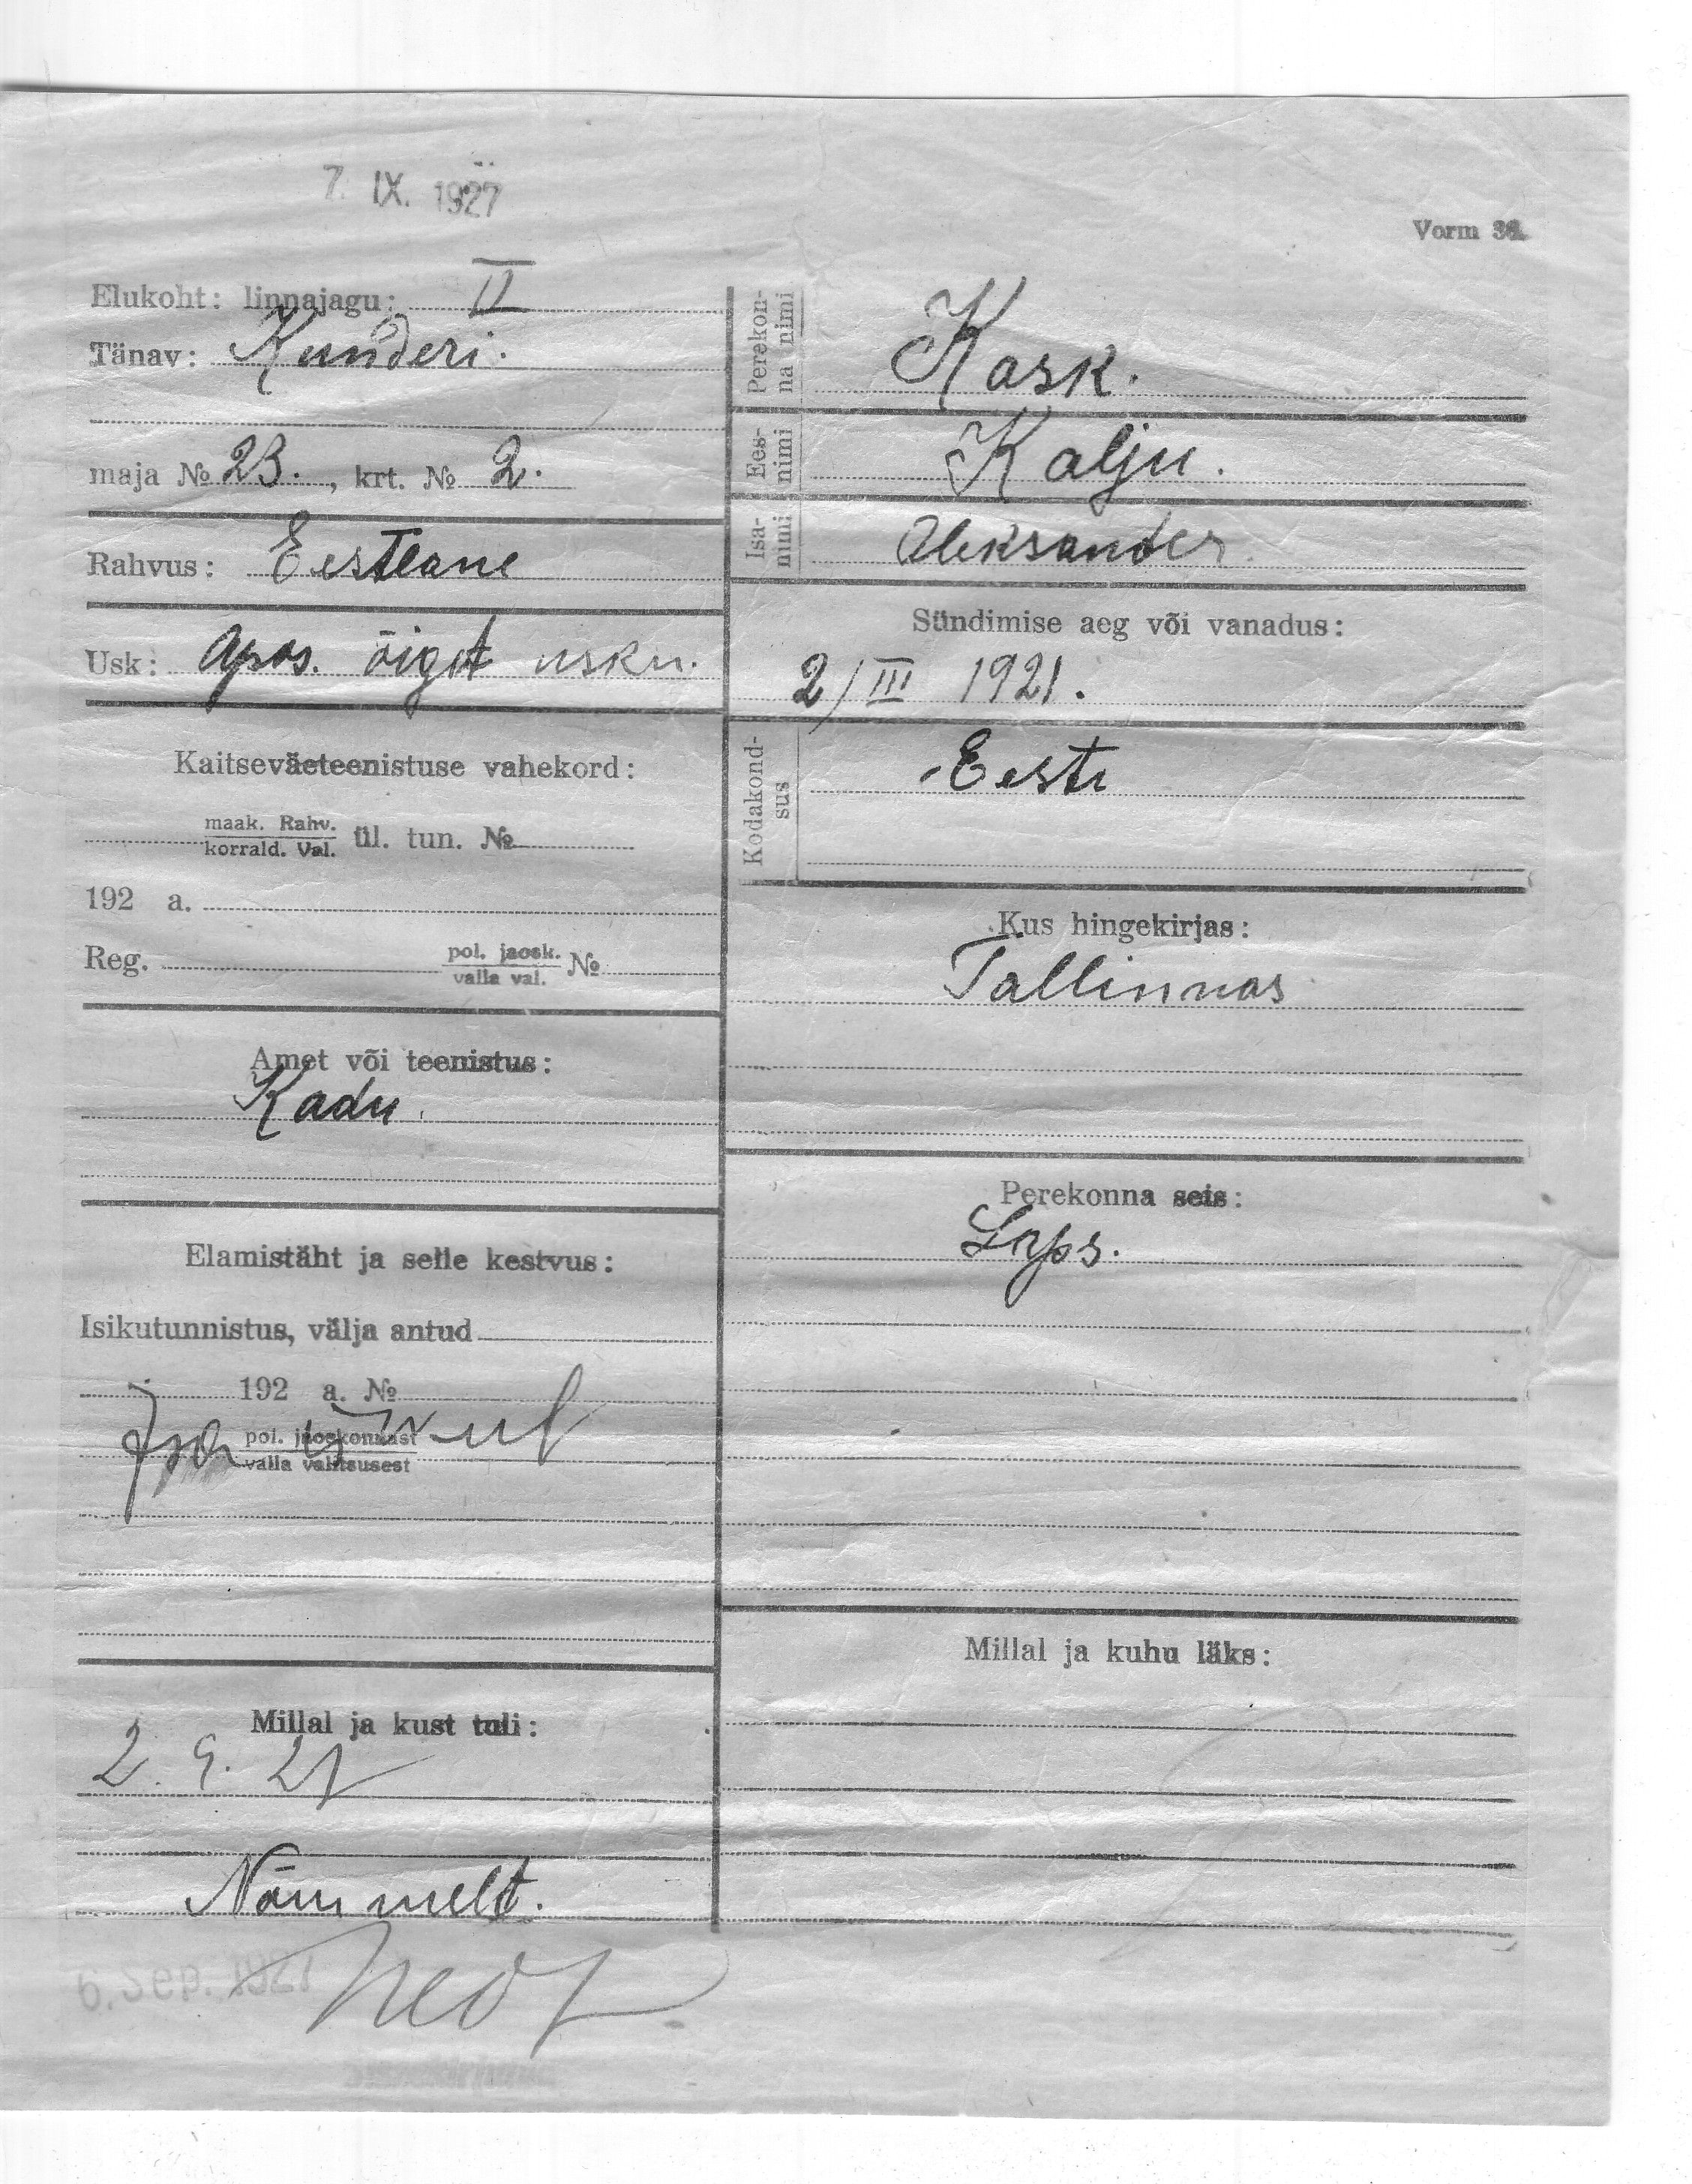 7. IX. 1927
Vorm 36.
Elukoht: linnajagu: II
Tänav: Kunderi.
maja № 23., krt. № 2.
Rahvus: Eestlane
Usk: Apos. õigst usku.
Kaitseväeteenistuse vahekord:
maak. Rahv.
korrald. Val. ül. tun. №
192 a.
Reg. pol. jaosk.
valla val. №
Amet või teenistus:
Kadu.
Elamistäht ja selle kestvus:
Isikutunnistus, välja antud
192 a. №
Isa
pol. jaoskonnast
valla valitsusest
Millal ja kust tuli:
2. 9. 27
Nõmmelt.
6. Sep. 1927
Perekon-
na nimi
Kask.
Ees-
nimi
Kalju.
Isa-
nimi
Aleksander.
Sündimise aeg või vanadus:
2/III 1921.
Kodakond-
sus
Eesti
Kus hingekirjas:
Tallinnas
Perekonna seis:
Laps.
Millal ja kuhu läks: